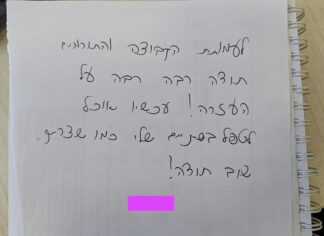 לעמותת הקבוצה והתורמים
תודה רבה רבה על
העזרה! עכשיו אוכל
לטפל בשיניים שלי כמו שצריך.
שוב תודה!